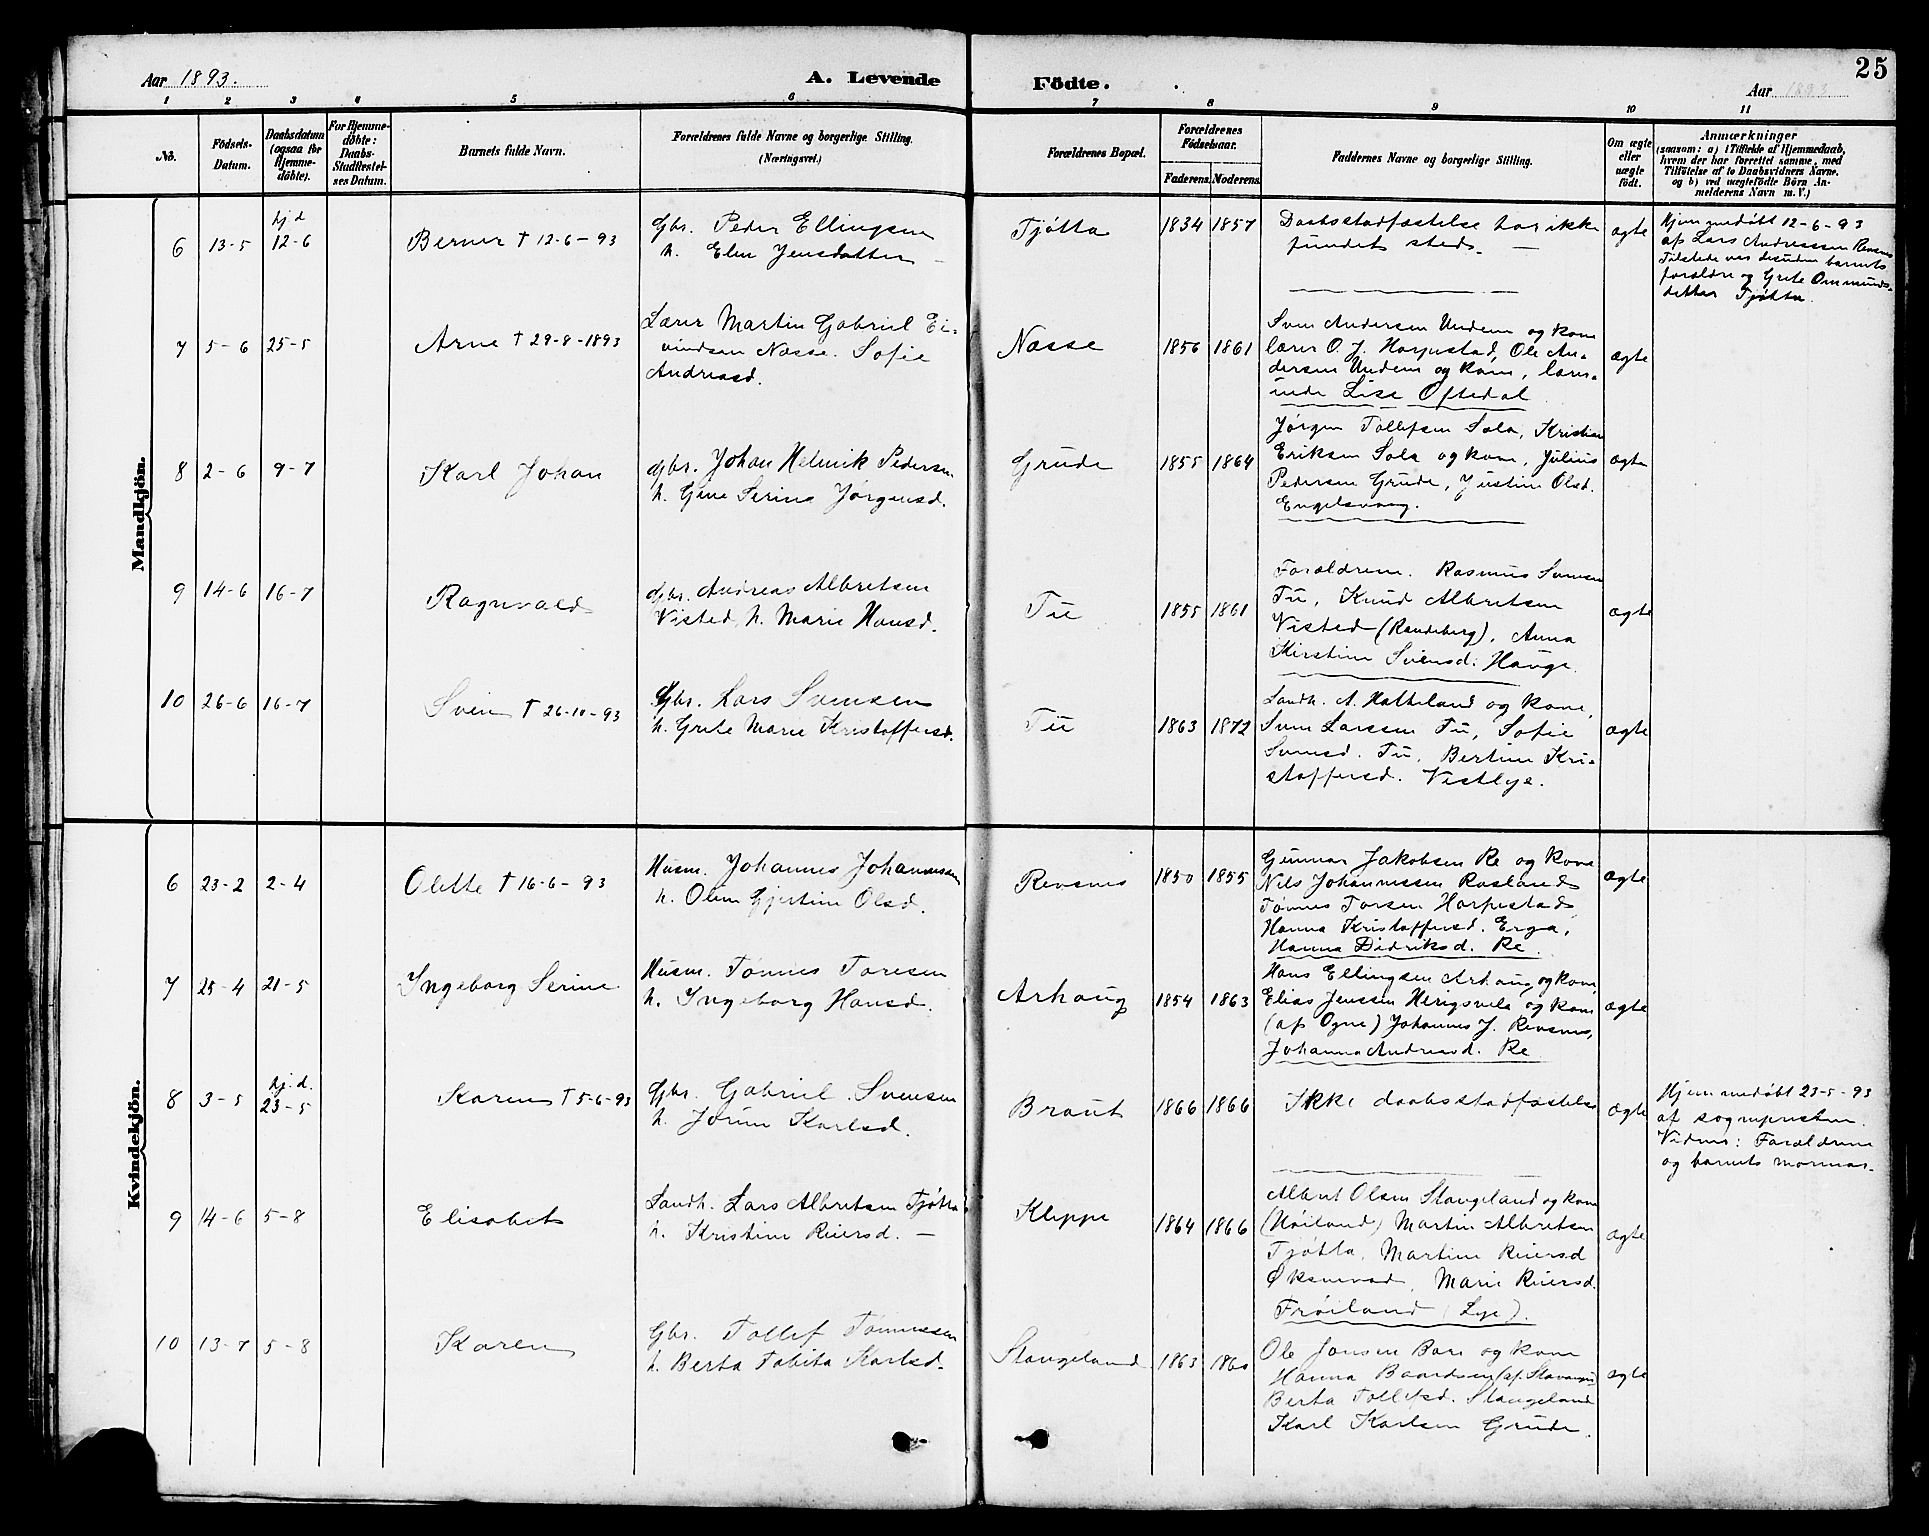 25
Aar 1893.
A. Levende
Födte.
Aar 1893
1 2 3 4 5 6 7 8 9 10 11
No.
Födsels-
Datum.
Daabsdatum
(ogsaa for
Hjemme-
döbte).
For Hjemme-
döbte:
Daabs-
Stadfæstel-
ses Datum.
Barnets fulde Navn.
Forældrenes fulde Navne og borgerlige Stilling.
(Næringsvei.)
Forældrenes Bopæl.
Forældrenes
Födselsaar.
Faderens.
Moderens.
Faddernes Navne og borgerlige Stilling.
Om ægte
eller
uægte
födt.
Anmærkninger
(saasom: a) i Tilfælde af Hjemmedaab,
hvem der har forrettet samme, med
Tilföielse af to Daabsvidners Navne.
og b) ved uægtefödte Börn An-
melderens Navn m. V.)
Mandkjön.
6
13-5
hj.d
12-6
Berner † 12-6-93
Gbr. Peder Ellingsen
h. Elen Jensdatter –
Tjøtta
1834
1857
Daabsstadfæstelse har ikke
fundet sted. —
ægte
Hjemmedøbt 12-6-93
af Lars Andreassen Revsnes
Tilstede var desuden barnets
forældre og Grete Ommunds-
datter Tjøtta.
7
5-6
25-5
Arne † 29-8-1893
Lærer Martin Gabriel Ei-
vindsen Næsse. Sofie
Andreasd.
Næsse
1856
1861
Sven Andersen Undem og kone
lærer O. J. Harpestad, Ole An-
dersen Undem og kone, lærer-
inde Lise Oftedal
ægte
8
2-6
9-7
Karl Johan
Gbr. Johan Helmik Pedersen
h. Gine Serine Jørgensd.
Grude
1855
1864
Jørgen Tollefsen Sola, Kristian
Eriksen Sola og kone, Julius
Pedersen Grude, Justine Olsd.
Engelsvaag.
ægte
9
14-6
16-7
Ragnvald
Gbr. Andreas Albretsen
Visted, h. Marie Hansd.
Tu
1855
1861
Forældrene. Rasmus Svensen
Tu, Knud Albretsen
Visted (Randeberg), Anna
Kirstine Svensd. Hauge.
ægte
10
26-6
16-7
Sven † 26-10-93
Gbr. Lars Svensen
h. Grete Marie Kristoffersd.
Tu
1863
1872
Landh. A. Hatteland og kone,
Sven Larssen Tu, Sofie
Svensd. Tu, Bertine Kri-
stoffersd. Vestlye.
ægte
Kvindekjön.
6
23-2
2-4
Olette † 16-6-93
Husm. Johannes Johannessen
h. Olene Gjertine Olsd.
Revsnes
1850
1855
Gunnar Jakobsen Re og kone
Nils Johannessen Rosland
Tønnes Torsen Harpestad,
Hanna Kristoffersd. Erga,
Hanna Didriksd. Re
ægte
7
25-4
21-5
Ingeborg Serine
Husm. Tønnes Toresen
h. Ingeborg Hansd.
Arhaug
1854
1863
Hans Ellingsen Arhaug og kone,
Elias Jenssen og kone
(af Ogne) Johannes J. Revsnes,
Johanna Andreasd. Re
ægte
8
3-5
hj.d.
23-5
Karen † 5-6-93
Gbr. Gabriel Svensen
h. Jorine Karlsd.
Braut
1866
1866
Ikke daabsstadfæstelse
ægte
Hjemmedøbt 23-5-93
af sognepresten.
Vidner: Forældrene
og barnets mormor.
9
14-6
5-8
Elisabet
Landh. Lars Albretsen Tjøtta
h. Kristine Reiersd. –
Kleppe
1864
1866
Albret Olsen Stangeland og kone
(Høiland) Martin Albretsen
Tjøtta, Martine Reiersd
Øksnevad, Marie Reiersd.
Frøiland (Lye).
ægte
10
13-7
5-8
Karen
Gbr. Tollef Tønnessen
h. Berta Tabita Karlsd.
Stangeland
1863
1860
Ole Jonsen Bore og kone
Hanna Baardsen (af Stavanger)
Berta Tollefsd. Stangeland
Karl Karlsen Grude.
ægte